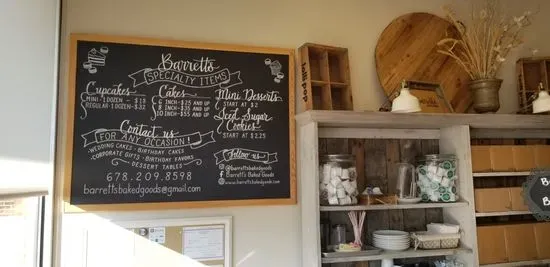 Barretts
SPECIALTY ITEMS
Cupcakes
MINI-1 DOZEN - $13
REGULAR-1 DOZEN-$32
Cakes
6 INCH-$25 AND UP
8 INCH-$35 AND UP
10 INCH-$55 AND UP
Mini Desserts
START AT $2
Iced Sugar
Cookies
START AT $2.25
Contact us
FOR ANY OCCASION!
WEDDING CAKES - BIRTHDAY CAKES
CORPORATE GIFTS - BIRTHDAY FAVORS
DESSERT TABLES
678.209.8598
barrettsbakedgoods@gmail.com
Follow us
@barrettsbakedgoods
Barrett's Baked Goods
www.barrettsbakedgoods.com
lollipop